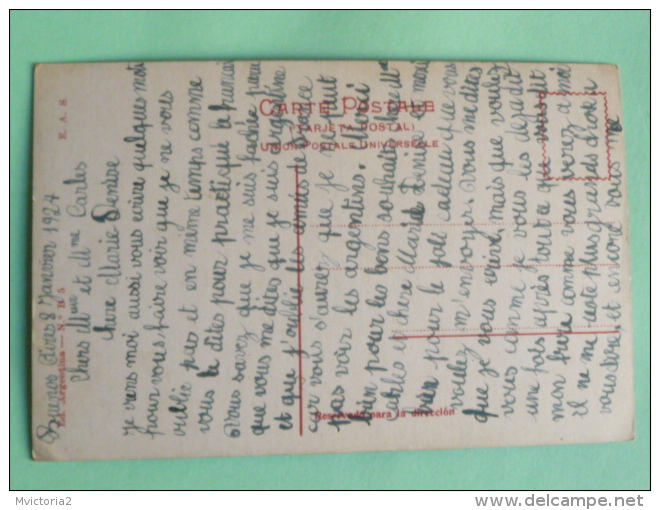 Buenos Aires 8 Janvier 1924
Chers Mr et Mme Carles
chere Marie Denise
Je viens moi aussi vous ecrire quelques mot
pour vous faire voir que je ne vous
oublie pas et en même temps comme
vous le dites pour practiquè le francais
Vous savez que je me suis fachée parce
que vous me dites que je suis argentine
et que j'oublie les amies de France
car vous s'aurez que je ne peut
pas voir les argentins. Merci
bien pour les bons souhaits de Mme
Carles et chere Marie Denise et merci
bien pour le joli cadeau que vous
voulez m'envoyer. Vous me dites
que je vous ecrive, mais que voulez
vous comme je vous les deja dit
une fois après tout ce que vous dit
mon frere comme vous verez a moi
il ne me reste plus grands chose a
vous dire, et encore vous me
CARTE POSTALE
(TARJETA POSTAL)
UNION POSTALE UNIVERSELLE
Reservado para la dirección
Ed. Argentina — N.º B 5
E. A. S
Mvictoria2
delcampe.net